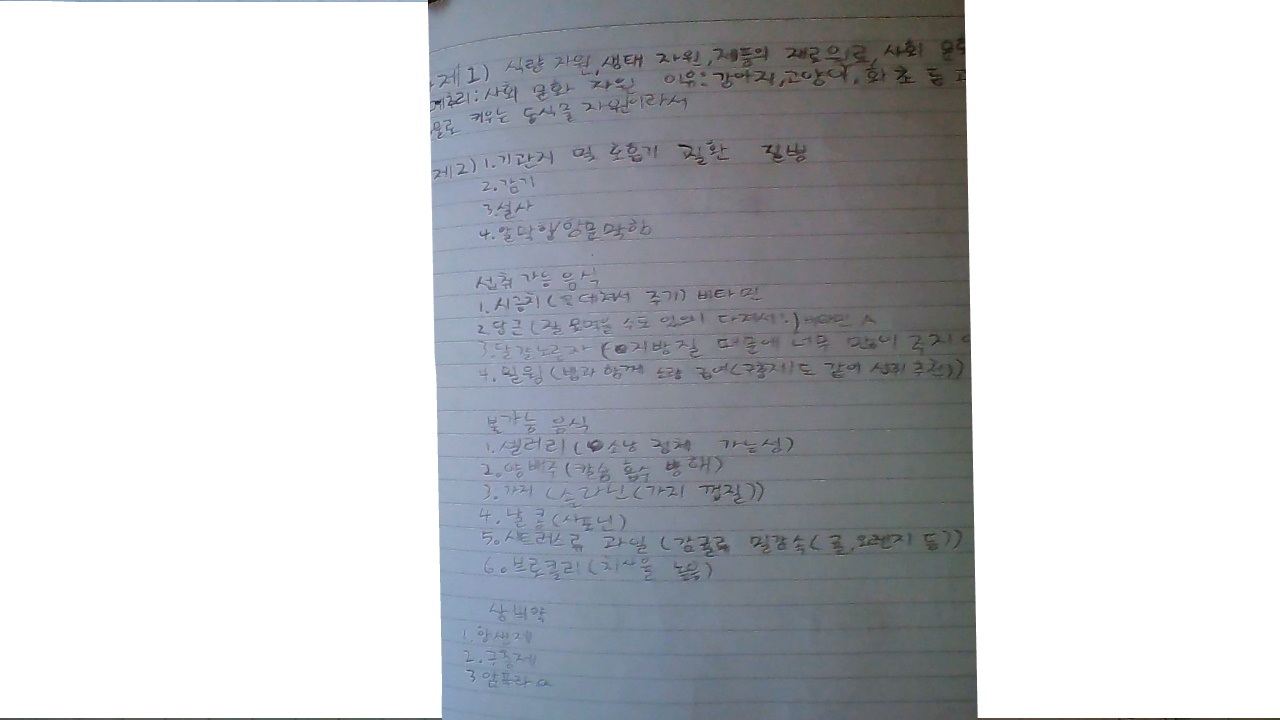 제1) 식량 자원, 생태 자원, 제품의 재료원료, 사회 문화
메추리: 사회 문화 자원 이유: 강아지, 고양이, 화초 등
물로 키우는 동식물 자원이라서
제2) 1. 기관지 및 호흡기 질환 질병
2. 감기
3. 설사
4. 알막힘/항문막힘
섭취 가능 음식
1. 시금치 ( 데쳐서 주기) 비타민
2. 당근 (잘 못먹을 수도 있으니 다져서!) 비타민 A
3. 달걀노른자 (지방질 때문에 너무 많이 주지
4. 밀웜 (밥과 함께 소량 급여(구충제도 같이 섭취 추천))
불가능 음식
1. 샐러리 (소낭 정체 가능성)
2. 양배추 (칼슘 흡수 방해)
3. 가지 (솔라닌(가지 껍질))
4. 날콩 (사포닌)
5. 시트러스류 과일 (감귤류 밀감속(귤, 오렌지 등))
6. 브로콜리 (치사율 높음)
상비약
1. 항생제
2. 구충제
3